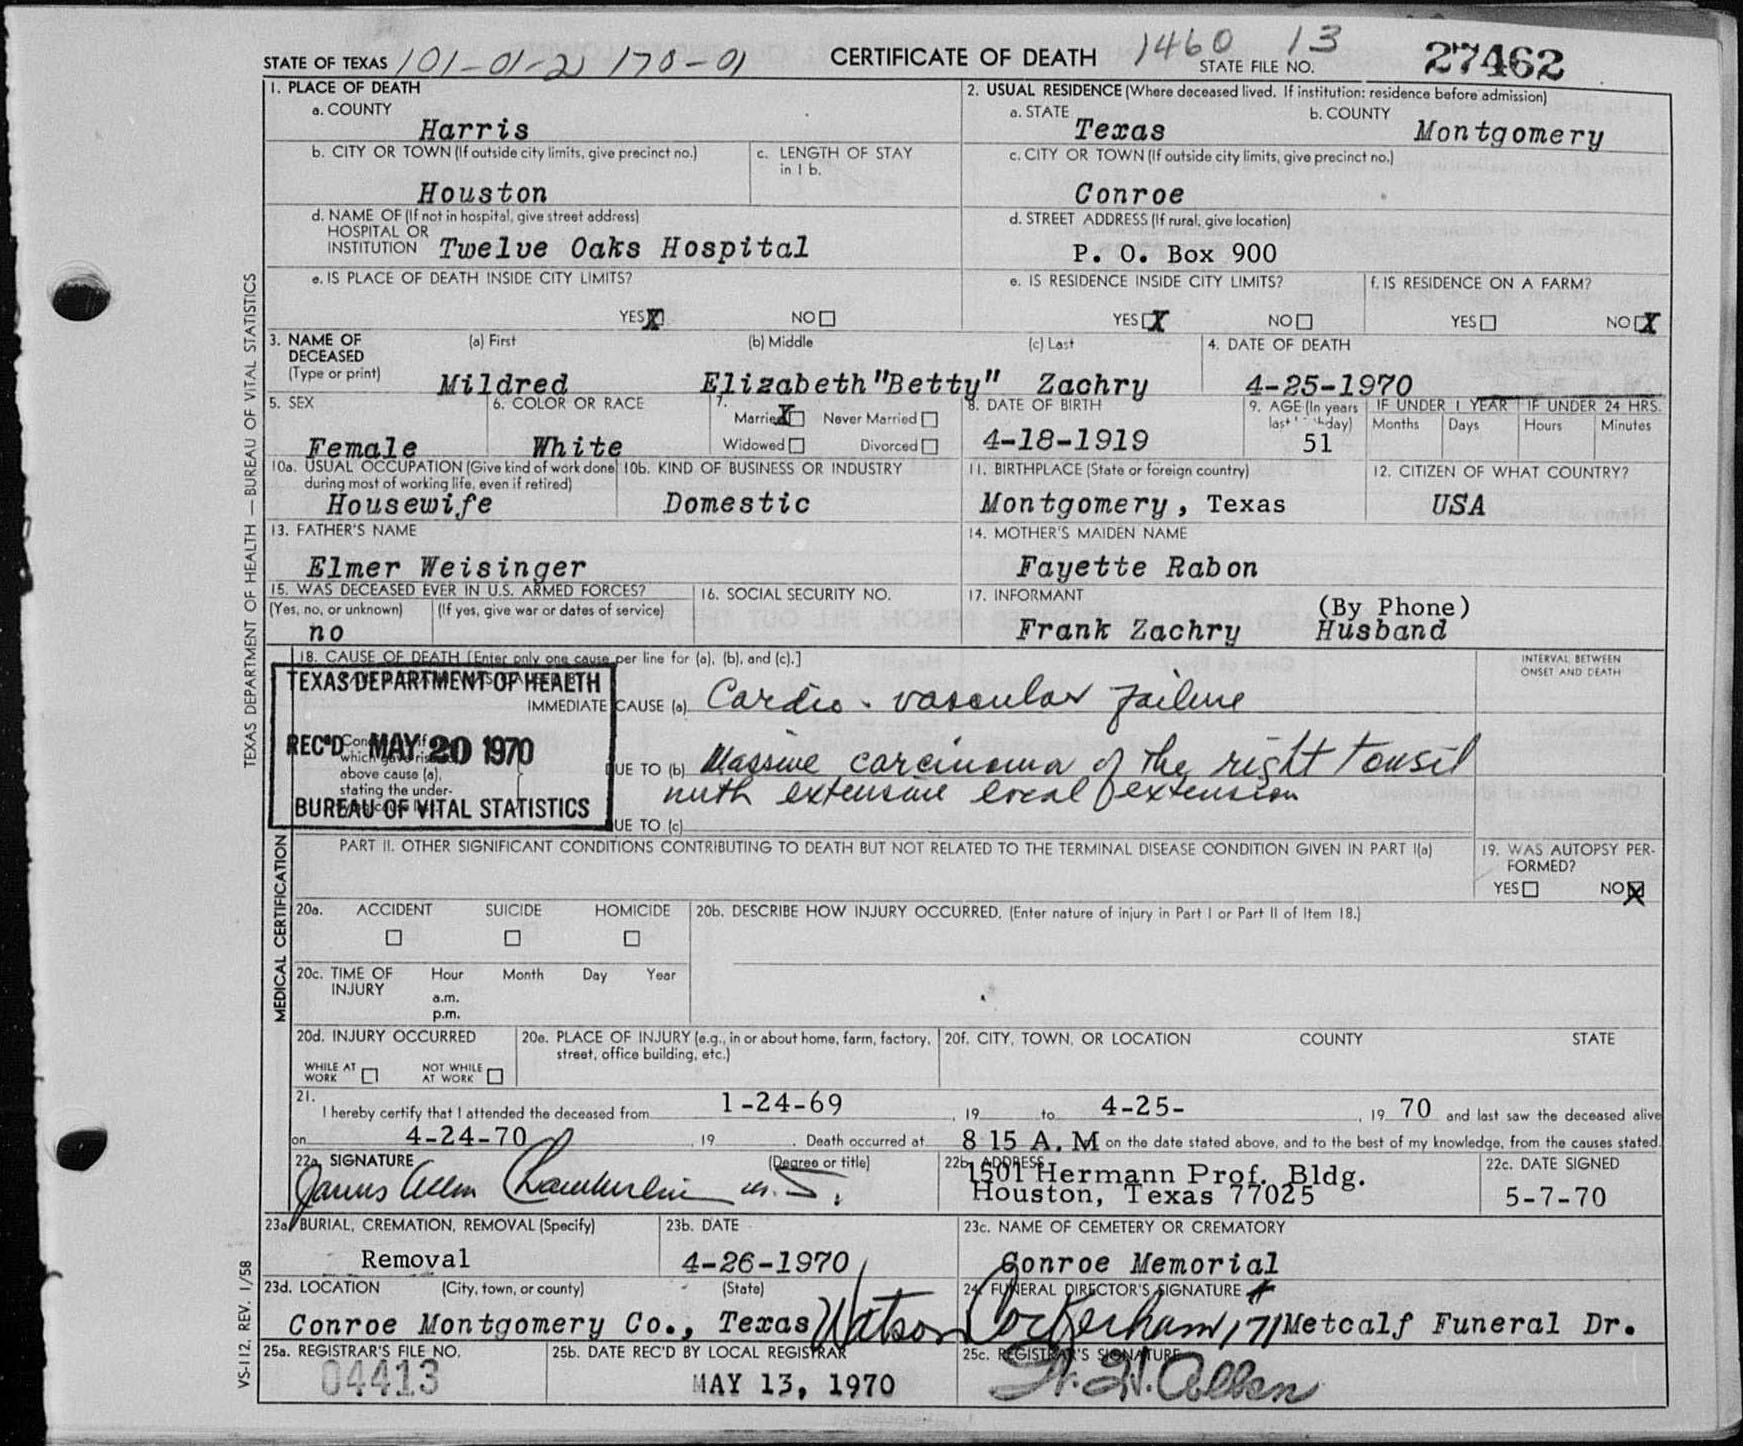 STATE OF TEXAS 101-01-2 170-01 CERTIFICATE OF DEATH 1460 13 STATE FILE NO. 27462
1. PLACE OF DEATH
a. COUNTY
Harris
2. USUAL RESIDENCE (Where deceased lived. If institution: residence before admission)
a. STATE b. COUNTY
Texas Montgomery
b. CITY OR TOWN (If outside city limits, give precinct no.)
Houston
c. LENGTH OF STAY
in 1 b.
c. CITY OR TOWN (If outside city limits, give precinct no.)
Conroe
d. NAME OF (If not in hospital, give street address)
HOSPITAL OR
INSTITUTION Twelve Oaks Hospital
d. STREET ADDRESS (If rural, give location)
P. O. Box 900
e. IS PLACE OF DEATH INSIDE CITY LIMITS?
YES X NO
e. IS RESIDENCE INSIDE CITY LIMITS?
YES X NO
f. IS RESIDENCE ON A FARM?
YES NO X
3. NAME OF
DECEASED
(Type or print)
(a) First (b) Middle (c) Last
Mildred Elizabeth "Betty" Zachry
4. DATE OF DEATH
4-25-1970
5. SEX
Female
6. COLOR OR RACE
White
7.
Married X Never Married
Widowed Divorced
8. DATE OF BIRTH
4-18-1919
9. AGE (In years
last
51
IF UNDER 1 YEAR IF UNDER 24 HRS.
Months Days Hours Minutes
10a. USUAL OCCUPATION (Give kind of work done
during most of working life, even if retired)
Housewife
10b. KIND OF BUSINESS OR INDUSTRY
Domestic
11. BIRTHPLACE (State or foreign country)
Montgomery, Texas
12. CITIZEN OF WHAT COUNTRY?
USA
13. FATHER'S NAME
Elmer Weisinger
14. MOTHER'S MAIDEN NAME
Fayette Rabon
15. WAS DECEASED EVER IN U.S. ARMED FORCES?
(Yes, no, or unknown) (If yes, give war or dates of service)
no
16. SOCIAL SECURITY NO.
17. INFORMANT
(By Phone)
Frank Zachry Husband
18. CAUSE OF DEATH [Enter only one cause per line for (a), (b), and (c).]
INTERVAL BETWEEN
ONSET AND DEATH
TEXAS DEPARTMENT OF HEALTH
REC'D MAY 20 1970
BUREAU OF VITAL STATISTICS
IMMEDIATE CAUSE (a) Cardio-vascular failure
above cause (a),
stating the under-
DUE TO (b) Massive carcinoma of the right tonsil
with extensive local extension
DUE TO (c)
PART II. OTHER SIGNIFICANT CONDITIONS CONTRIBUTING TO DEATH BUT NOT RELATED TO THE TERMINAL DISEASE CONDITION GIVEN IN PART I(a)
19. WAS AUTOPSY PER-
FORMED?
YES NO X
20a. ACCIDENT SUICIDE HOMICIDE
20b. DESCRIBE HOW INJURY OCCURRED. (Enter nature of injury in Part I or Part II of Item 18.)
20c. TIME OF
INJURY
Hour Month Day Year
a.m.
p.m.
20d. INJURY OCCURRED
WHILE AT
WORK
NOT WHILE
AT WORK
20e. PLACE OF INJURY (e.g., in or about home, farm, factory,
street, office building, etc.)
20f. CITY, TOWN, OR LOCATION COUNTY STATE
21.
I hereby certify that I attended the deceased from 1-24-69, 19 to 4-25-, 19 70 and last saw the deceased alive
on 4-24-70, 19 . Death occurred at 8 15 A. M on the date stated above, and to the best of my knowledge, from the causes stated.
22a. SIGNATURE (Degree or title)
James Allen Chamberlin M.D.
22b. ADDRESS
1501 Hermann Prof. Bldg.
Houston, Texas 77025
22c. DATE SIGNED
5-7-70
23a. BURIAL, CREMATION, REMOVAL (Specify)
Removal
23b. DATE
4-26-1970
23c. NAME OF CEMETERY OR CREMATORY
Conroe Memorial
23d. LOCATION (City, town, or county) (State)
Conroe Montgomery Co., Texas
24. FUNERAL DIRECTOR'S SIGNATURE
Watson Cockerham 171 Metcalf Funeral Dr.
25a. REGISTRAR'S FILE NO.
04413
25b. DATE REC'D BY LOCAL REGISTRAR
MAY 13, 1970
25c. REGISTRAR'S SIGNATURE
W. H. Allen
TEXAS DEPARTMENT OF HEALTH — BUREAU OF VITAL STATISTICS
MEDICAL CERTIFICATION
VS-112, REV. 1/58